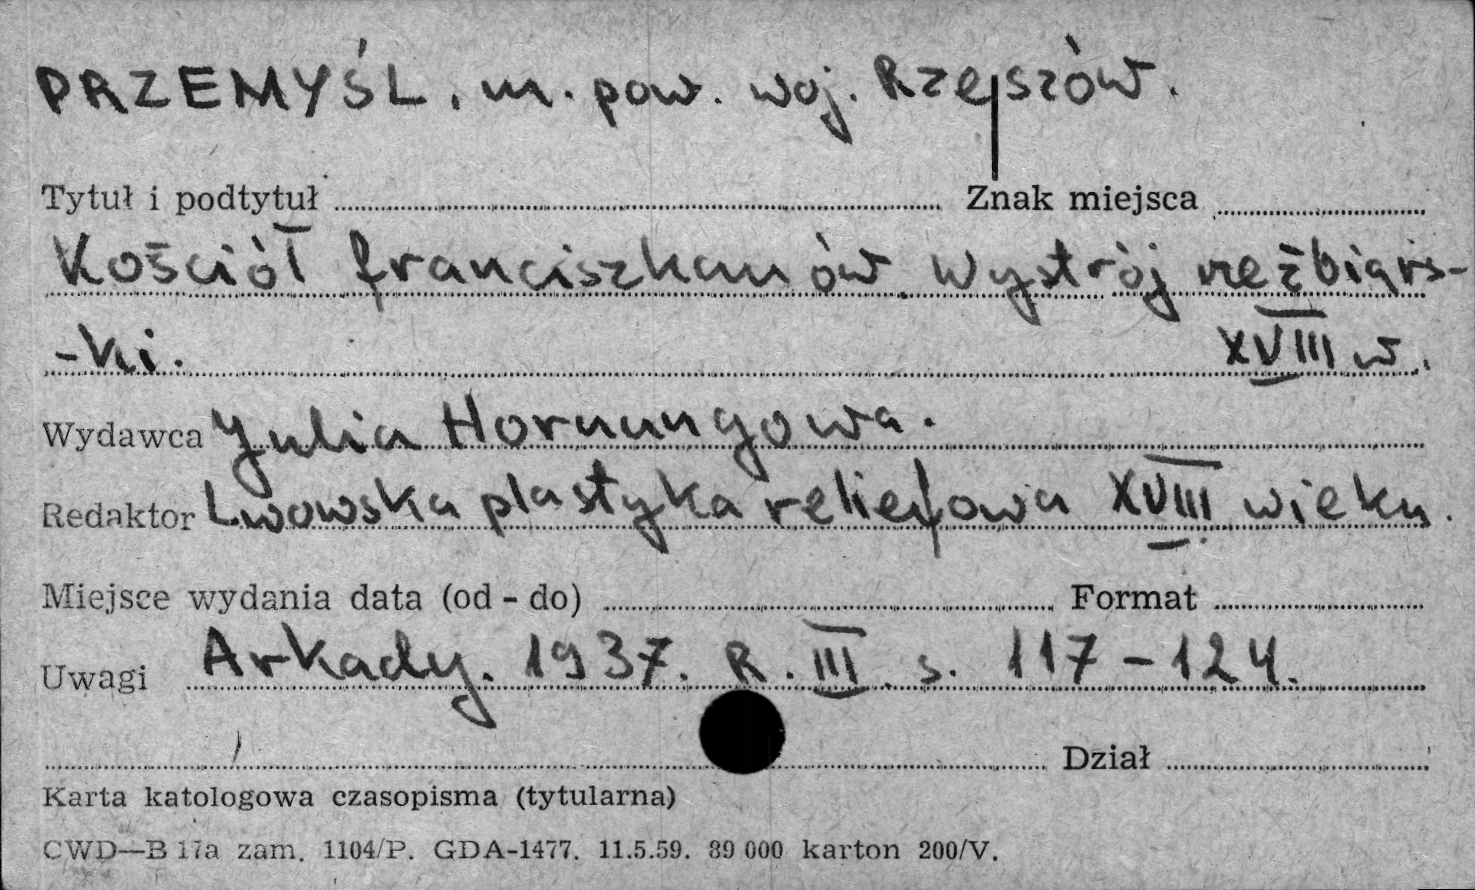 PRZEMYŚL. m. pow. woj. Rzeszów.
Tytuł i podtytuł Znak miejsca
Kościół franciszkanów. Wystrój rzeźbiars-
-ki. XVIII w.
Wydawca Julia Hornungowa.
Redaktor Lwowska plastyka reliefowa XVIII wieku.
Miejsce wydania data (od - do) Format
Uwagi Arkady. 1937. R. III. s. 117-124.
Dział
Karta katologowa czasopisma (tytularna)
CWD—B 17a zam. 1104/P. GDA-1477. 11.5.59. 89 000 karton 200/V.